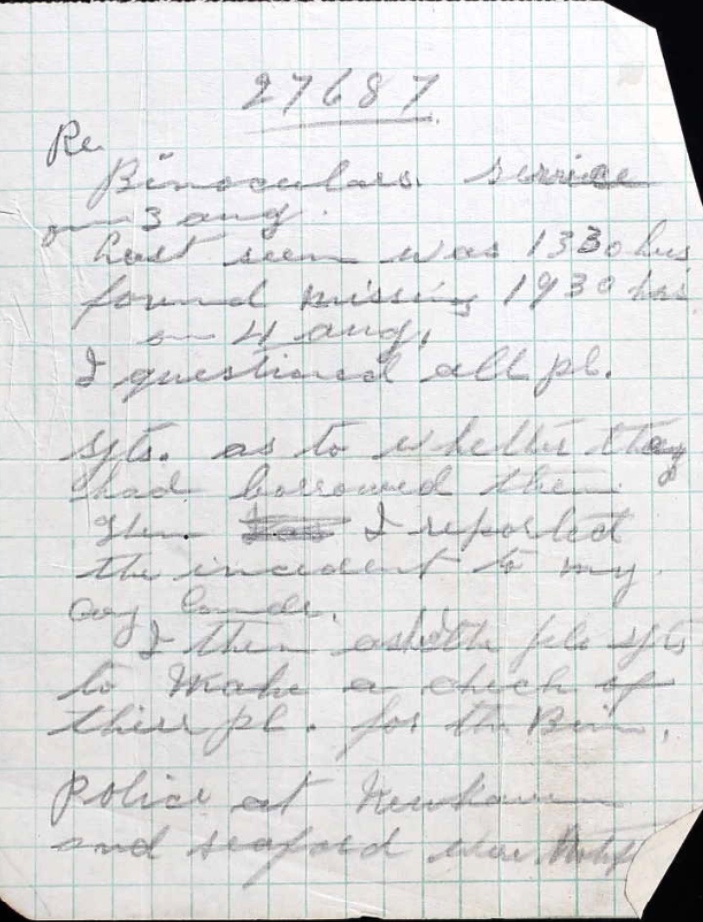 27687
Re
Binoculars service
on 3 aug.
Last seen was 1330 hrs
found missing 1930 hrs
on 4 aug.
I questioned all pl.
sgts. as to whether they
had borrowed them.
Then I reported
the incident to my
Coy Comdr.
I then asked the pln sgts
to make a check of
their pl. for the Bin.
Police at Newhaven
and seaford were Notif